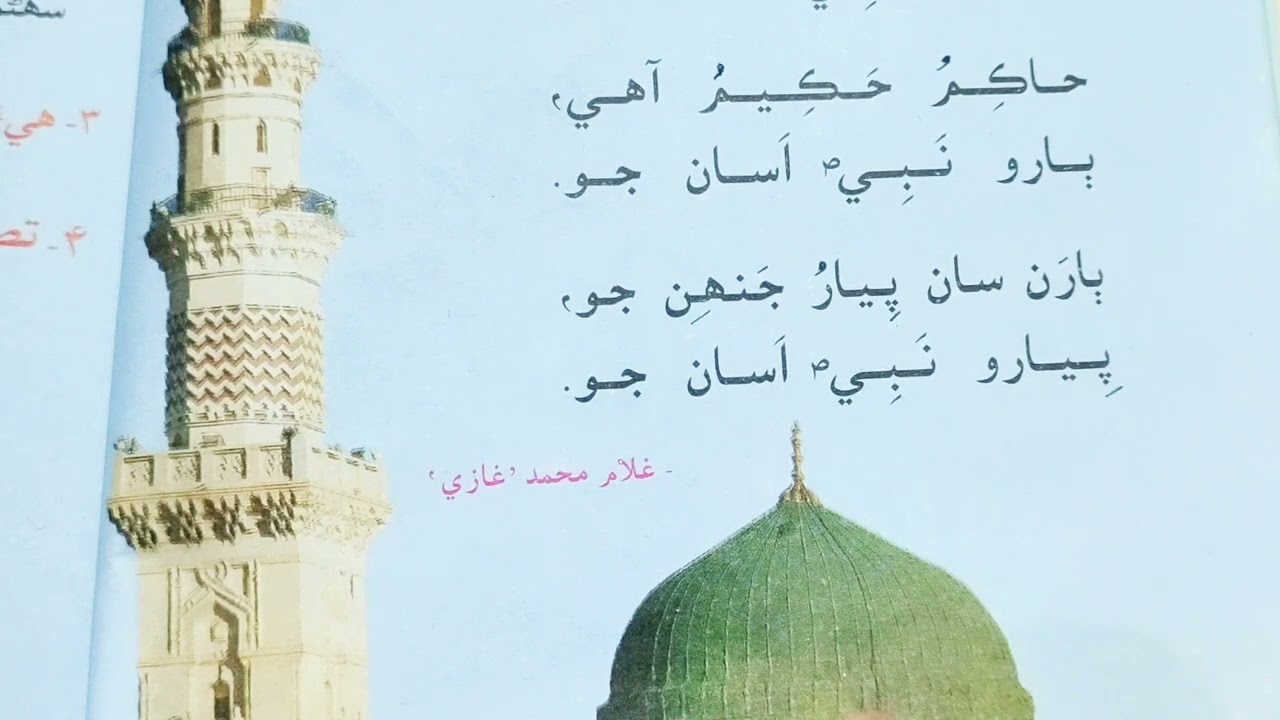 حاڪِمُ حَڪِيمُ آهي،
ٻارو نَبِيؐ اَسان جو.
ٻارَن سان پِيارُ جَنهِن جو،
پِيارو نَبِيؐ اَسان جو.
- غلام محمد ’غازي‘
۳- هي
۴-